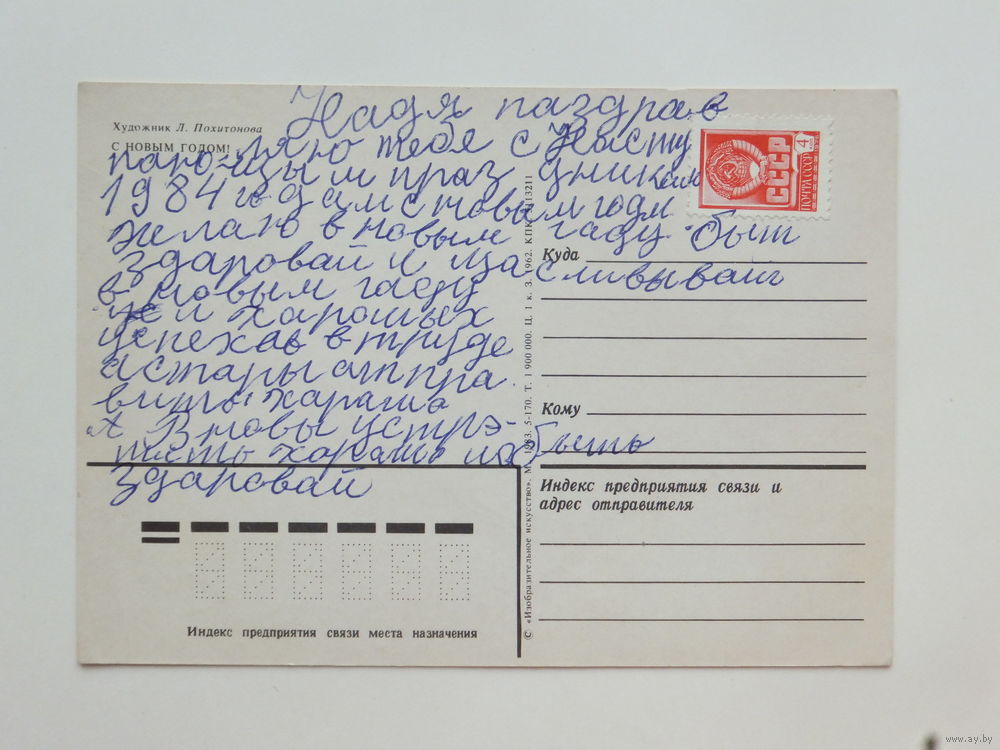 Художник Л. Похитонова
С НОВЫМ ГОДОМ!
Надя паздрав
ляю тебя с Насту
паю щым праз дником
1984 года м с новым годм
желаю в новым гаду быт
здаровай и щасливывай
в новым гаду
и харошых
успехав в труде
астары атпра
вить харашо
А Новы устрэ-
тить харашо и быть
здаровай
ПОЧТА СССР
СССР
4
Куда
Кому
Индекс предприятия связи и
адрес отправителя
Индекс предприятия связи места назначения
© «Изобразительное искусство». М. 1983. 5-170. Т. 1 900 000. Ц. 1 к. З. 1962. КПК 13211
www.ay.by